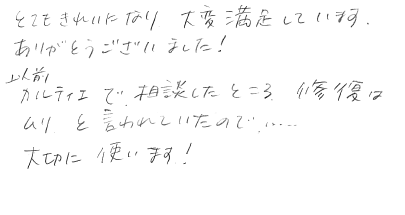 とてもきれいになり 大変満足しています.
ありがとうございました!
以前
カルティエで相談したところ 修復は
ムリ と言われていたので.……
大切に使います!